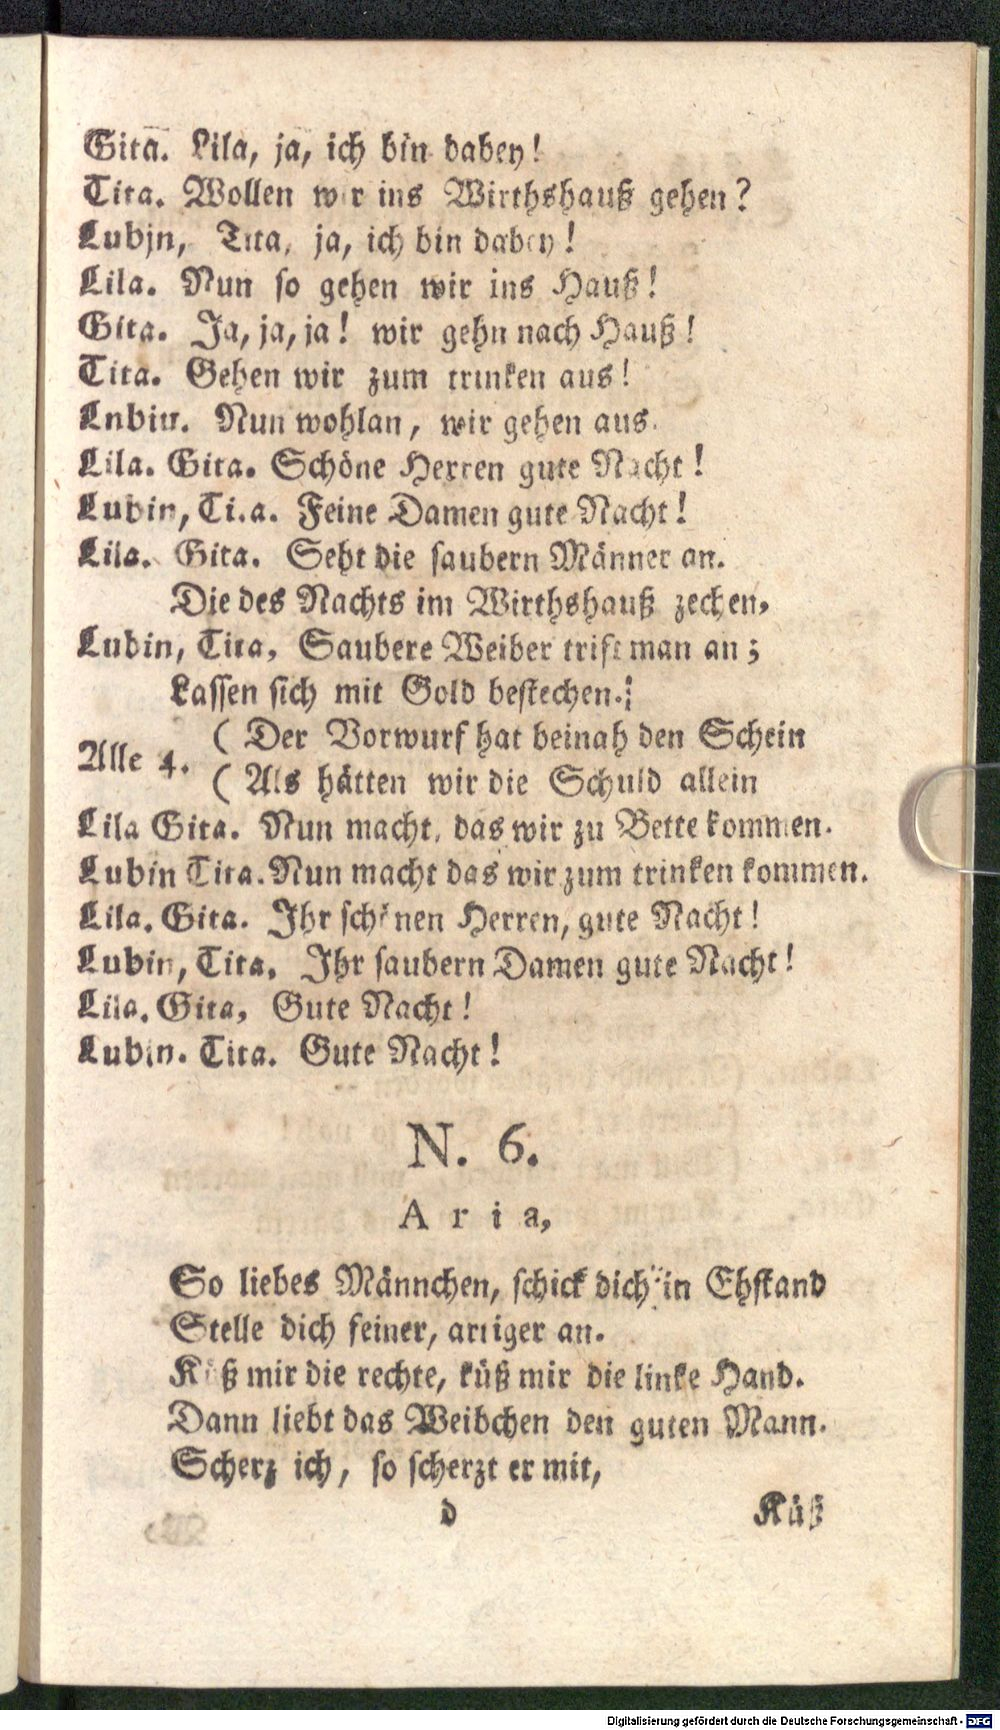 Gita. Lila, ja, ich bin dabey!
Tita. Wollen wir ins Wirthshauß gehen?
Lubin, Tita, ja, ich bin dabey!
Lila. Nun so gehen wir ins Hauß!
Gita. Ja, ja, ja! wir gehn nach Hauß!
Tita. Gehen wir zum trinken aus!
Lnbin. Nun wohlan, wir gehen aus.
Lila. Gita. Schöne Herren gute Nacht!
Lubin, Tita. Feine Damen gute Nacht!
Lila. Gita. Seht die saubern Männer an.
Die des Nachts im Wirthshauß zechen,
Lubin, Tita, Saubere Weiber trift man an;
Lassen sich mit Gold bestechen.
Alle 4. ( Der Vorwurf hat beinah den Schein
( Als hätten wir die Schuld allein
Lila Gita. Nun macht, das wir zu Bette kommen.
Lubin Tita. Nun macht das wir zum trinken kommen.
Lila. Gita. Ihr schönen Herren, gute Nacht!
Lubin, Tita, Ihr saubern Damen gute Nacht!
Lila. Gita, Gute Nacht!
Lubin. Tita. Gute Nacht!
N. 6.
Aria,
So liebes Männchen, schick dich in Ehstand
Stelle dich feiner, artiger an.
Küß mir die rechte, küß mir die linke Hand.
Dann liebt das Weibchen den guten Mann.
Scherz ich, so scherzt er mit,
d Küß
Digitalisierung gefördert durch die Deutsche Forschungsgemeinschaft - DFG